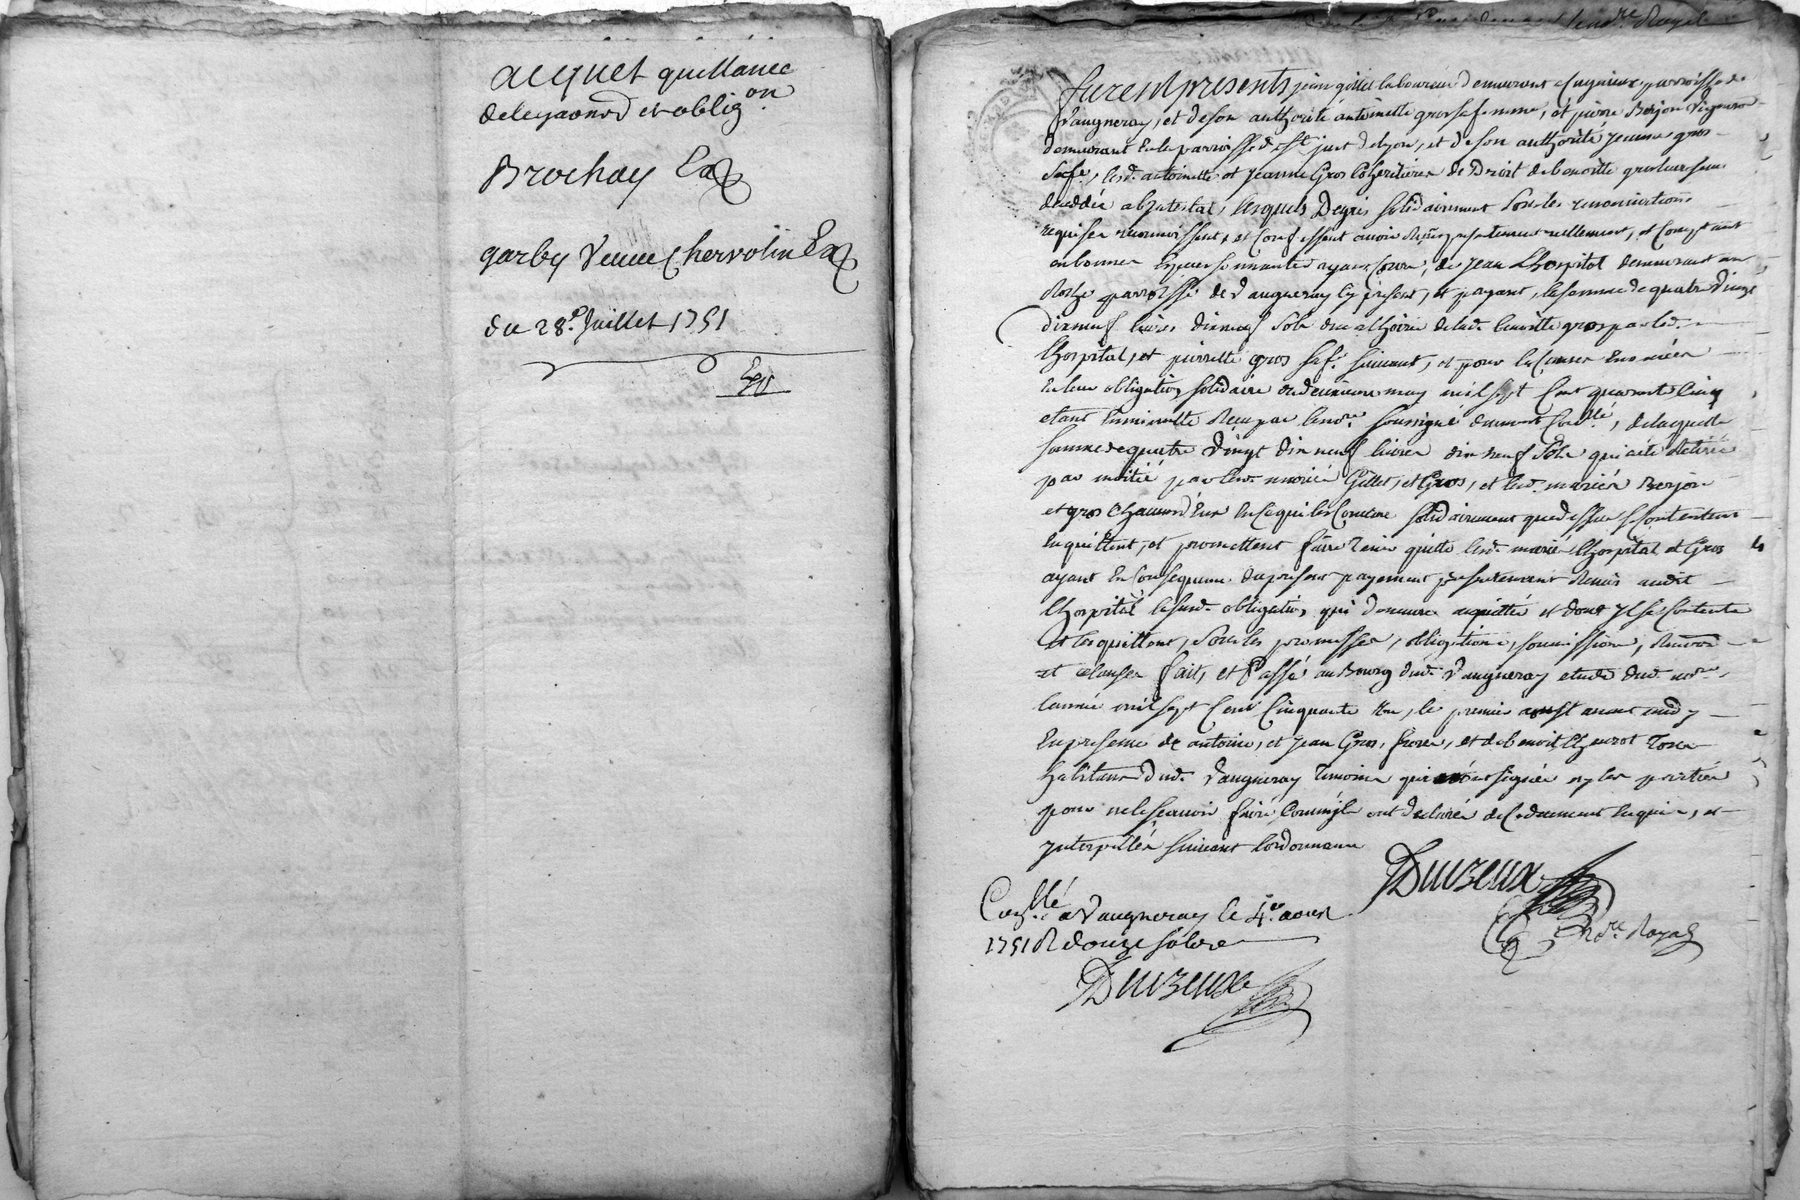 acquet quittance
de legaõns et oblig.on
Brochay Exp
garby veuve Chervolin Exp
du 28e. Juillet 1751
Exp
furent presents jean gillet laboureur demeurant a paroisse de
Vaugneray, et de son authorité antoinette gros sa femme, et pierre Berjon Vigneron
demeurant en la parroisse de st. just de lyon, et de son authorité jeanne gros
sa fe., lesd. antoinette et jeanne Gros coheritieres de Droit de benoitte gros leur sœur
decedée abjntestat, lesquels De gré, solidairement sous les renonciations
requises reconnoissent, et confessent avoir reçu presentement reellement, et comptant
en bonnes especes sonnantes ayant cours, de jean Lhospital demeurant au
parroisse de Vaugneray cy present, et payant, la somme de quatre Vingt
dix neuf livres dix neuf sols due a lhoirie de lad. benoitte gros par led.
Lhospital, et pierrette gros sa fe. suivant, et pour les causes enoncées
en leur obligation solidaire du deuxieme may mil sept cent quarante cinq
etant en minutte reçu par le nore. soussigné duement conllé, de laquelle
somme de quatre Vingt dix neuf livres dix neuf sols qui a été retirée
par moitié par lesd. mariés Gillet, et Gros, et lesd. mariés Berjon
et gros chacuns d'eux en ce qui les concerne solidairement que dessus se contentent
en quittent, et promettent faire tenir quitte lesd. mariés Lhospital et Gros
ayant en consequence du present payement presentement remis audit
Lhospital la susd. obligation qui demeure acquittée et dont jl se contente
et les quittent, sous les promesses, obligations, soumissions, renõns
et clauses fait, et Passé au Bourg dud. Vaugneray etude dud. nore.
lannée mil sept cent cinquante un, le premier aoust avant midy
en presence de antoine, et jean Gros, freres, et de benoit tous
habitans dud. Vaugneray temoins qui n'ont signés ny les parties
pour ne le scavoir faire comm'jls ont declarés de ce duement enquis, et
jnterpellés suivant lordonnance
Duvzeux
nore. Royal
Conllé a Vaugneray le 4e. aoust
1751 R douze sols
Duvzeux